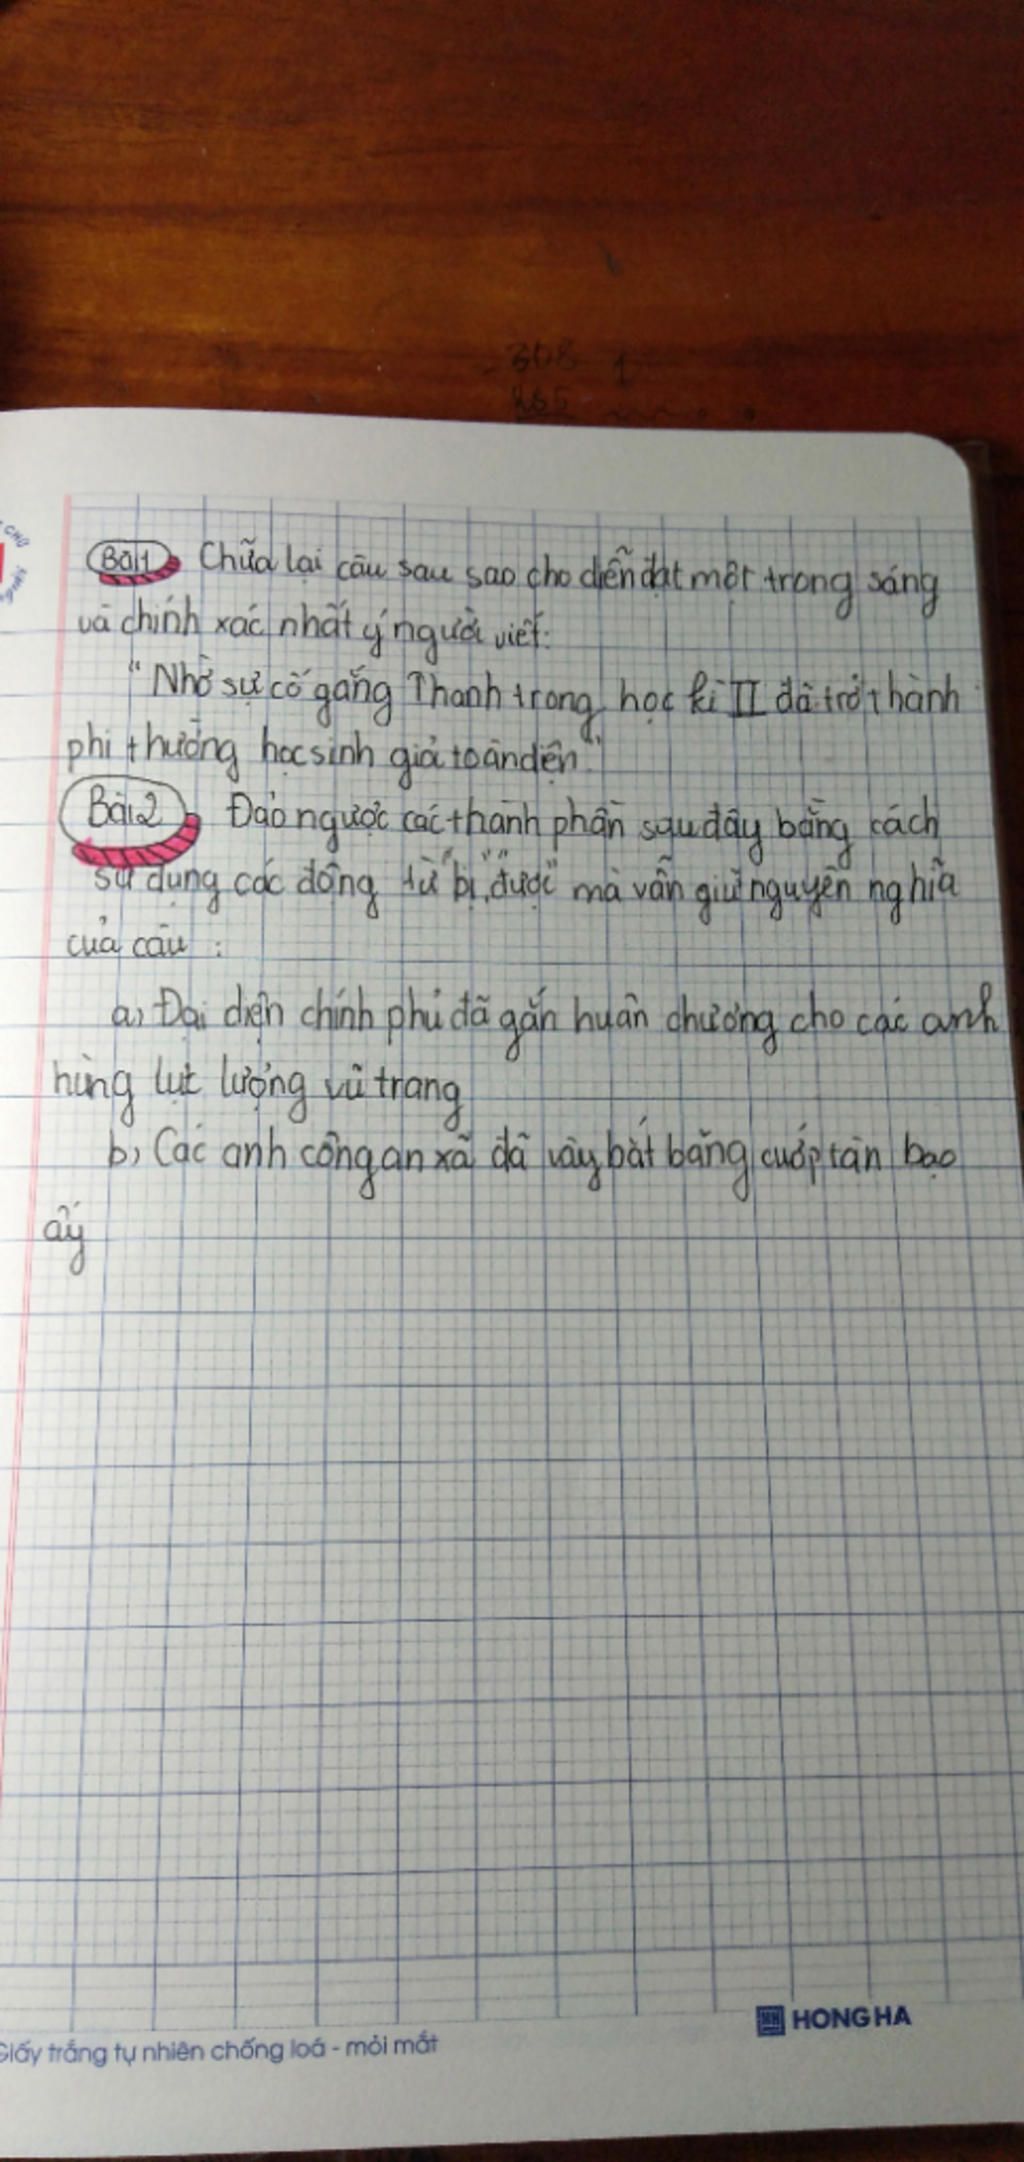 308 1
Bài 1 Chữa lại câu sau sao cho diễn đạt một trong sáng
và chính xác nhất ý người viết:
"Nhờ sự cố gắng Thanh trong học kì II đã trở thành
phi thường học sinh giỏi toàn diện".
Bài 2 Đảo ngược các thành phần sau đây bằng cách
sử dụng các động từ "bị", "được" mà vẫn giữ nguyên nghĩa
của câu :
a, Đại diện chính phủ đã gắn huân chương cho các anh
hùng lực lượng vũ trang
b, Các anh công an xã đã vây bắt băng cướp tàn bạo
ấy
HONG HA
Giấy trắng tự nhiên chống loá - mỏi mắt